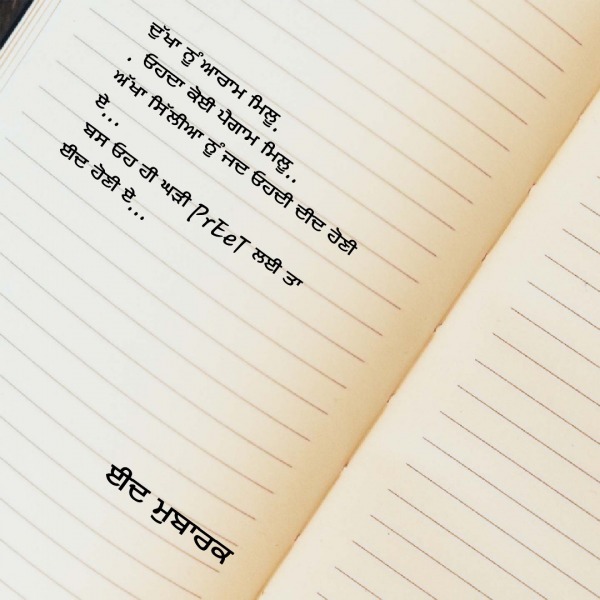 ਦੁੱਖਾ ਨੂੰ ਆਰਾਮ ਮਿਲੂ.
. ਓਹਦਾ ਕੋਈ ਪੈਗਾਮ ਮਿਲੂ..
ਅੱਖਾ ਸਿੱਲੀਆ ਨੂੰ ਜਦ ਓਹਦੀ ਦੀਦ ਹੋਣੀ
ਏ...
ਬਸ ਓਹ ਹੀ ਘੜੀ PrEeT ਲਈ ਤਾ
ਈਦ ਹੋਣੀ ਏ...
ਈਦ ਮੁਬਾਰਕ